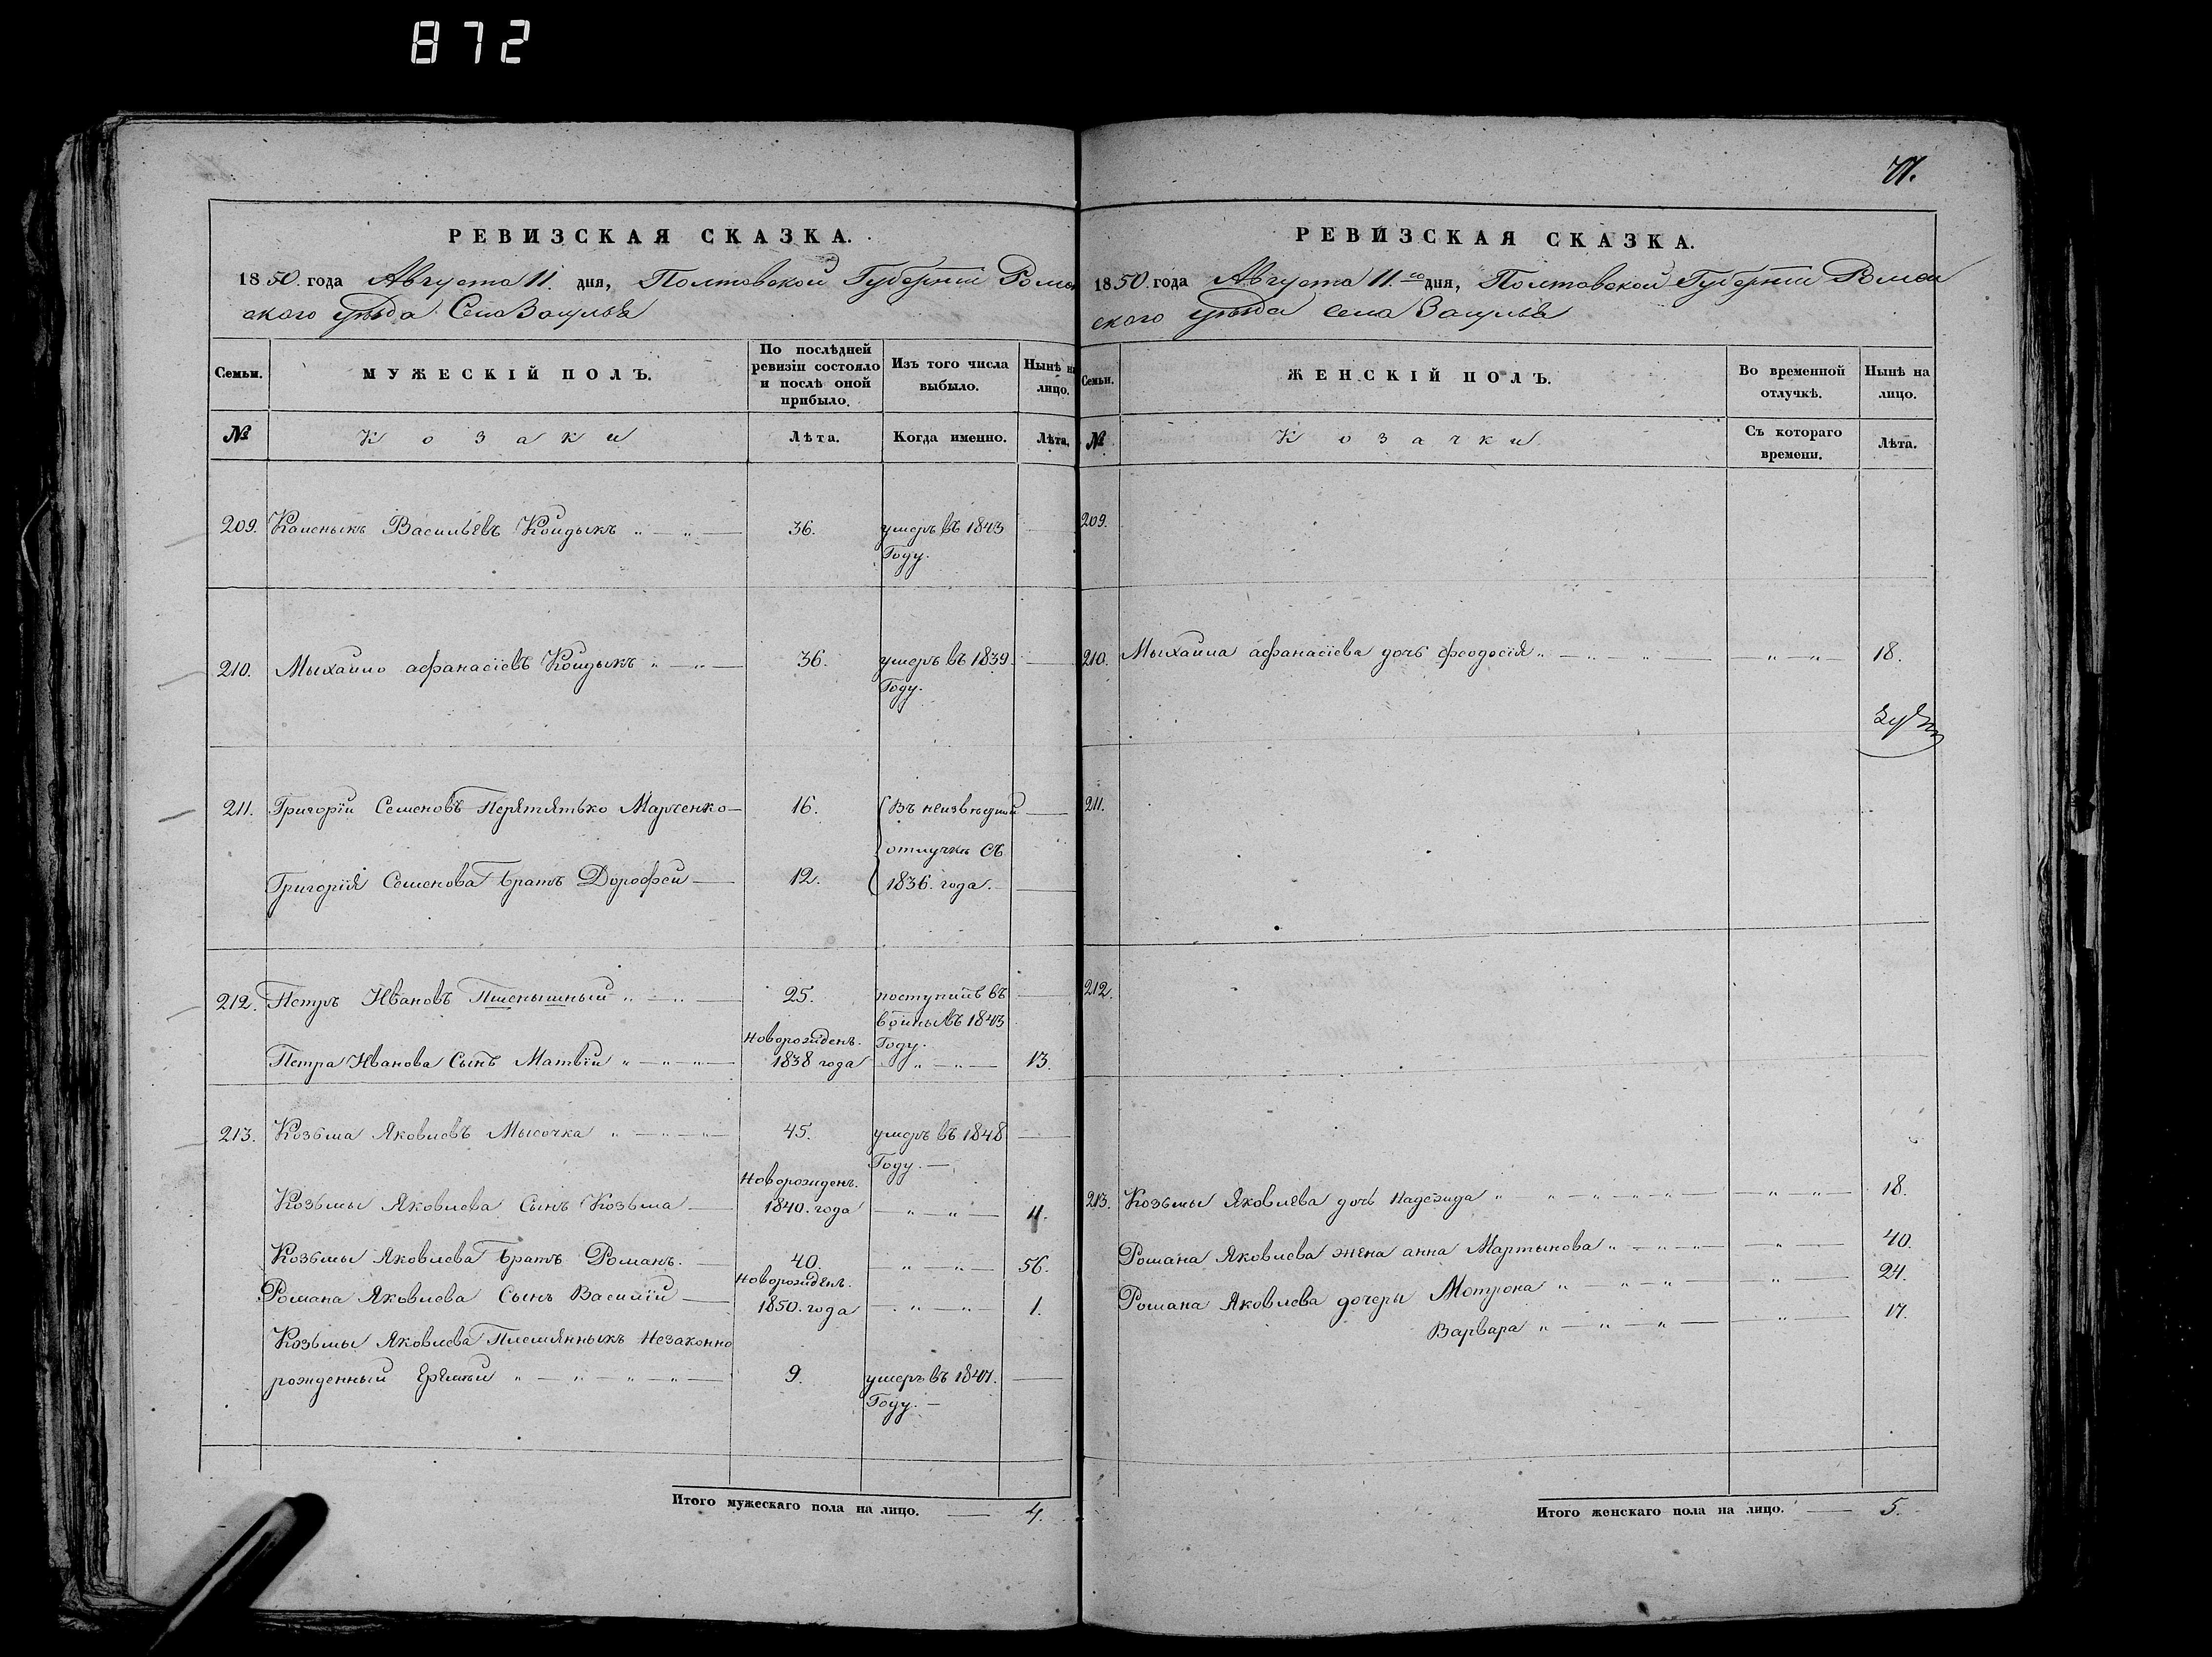 872
РЕВИЗСКАЯ СКАЗКА.
1850. года Августа 11. дня, Полтовской Губерніи Ромен
ского уѣзда Села Засулья
Семьи.
МУЖЕСКІЙ ПОЛЪ.
По послѣдней
ревизіи состояло
и послѣ оной
прибыло.
Изъ того числа
выбыло.
Нынѣ на
лицо.
№
Козаки
Лѣта.
Когда именно.
Лѣта.
209. Васильевъ 36. умеръ въ 1843
Году.
210. Мыхайло афанасіевъ 36. умеръ въ 1839.
Году.
211. Григорій Семеновъ Перятятько Марченко 16. Въ неизвѣстной
отлучкѣ Съ
Григорія Семенова братъ Дорофей 12. 1836. года.
212. Петръ Ивановъ Пшенышный 25. поступилъ въ
въ 1843
Новорожденъ. Году.
Петра Иванова Сынъ Матвій 1838 года 13.
213. Козьма Яковлевъ Мысочка 45. умеръ въ 1848
Году.
Новорожденъ.
Козьмы Яковлева Сынъ Козьма 1840. года 11.
Козьмы Яковлева братъ Романъ. 40. 56.
Новорожденъ.
Романа Яковлева Сынъ Василій 1850. года 1.
Козьмы Яковлева Племянныкъ Незаконно
рожденный 9. умеръ въ 1847.
Году.
Итого мужескаго пола на лицо. 4.
71.
РЕВИЗСКАЯ СКАЗКА.
1850. года Августа 11.го дня, Полтовской Губерніи Ромен
ского уѣзда Села Засулья
Семьи.
ЖЕНСКІЙ ПОЛЪ.
Во временной
отлучкѣ.
Нынѣ на
лицо.
№
Козачки
Съ котораго
времени.
Лѣта.
209.
210. Мыхайла афанасіева дочь феодосія 18.
211.
212.
213. Козьмы Яковлева дочь Надежида 18.
Романа Яковлева жена анна Мартынова 40.
Романа Яковлева дочери Мотрона 24.
Варвара 17.
Итого женскаго пола на лицо. 5.